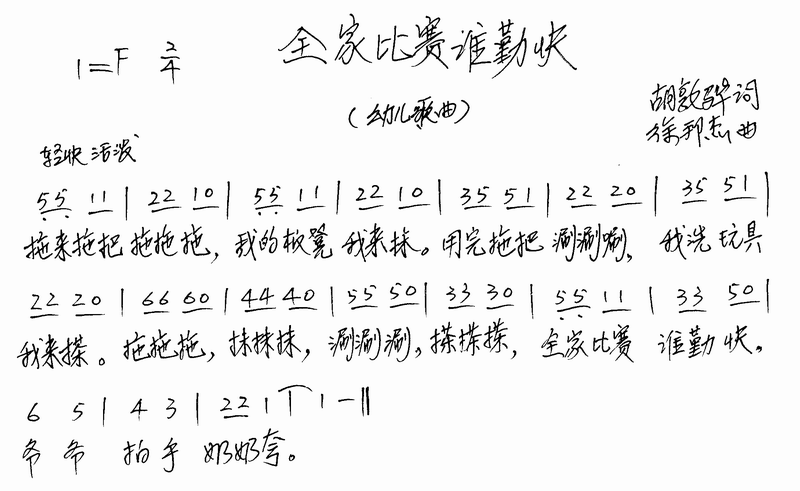 全家比赛谁勤快
1=F 2/4
(幼儿歌曲)
胡敦骅词
徐邦杰曲
轻快活泼
55 11 | 22 10 | 55 11 | 22 10 | 35 51 | 22 20 | 35 51 |
拖来拖把拖拖拖，我的板凳我来抹。用完拖把涮涮涮，我洗玩具
22 20 | 66 60 | 44 40 | 55 50 | 33 30 | 55 11 | 33 50 |
我来搽。拖拖拖，抹抹抹，涮涮涮，搽搽搽，全家比赛 谁勤快。
6 5 | 4 3 | 22 1 | 1 - ‖
爷爷 拍手 奶奶夸。